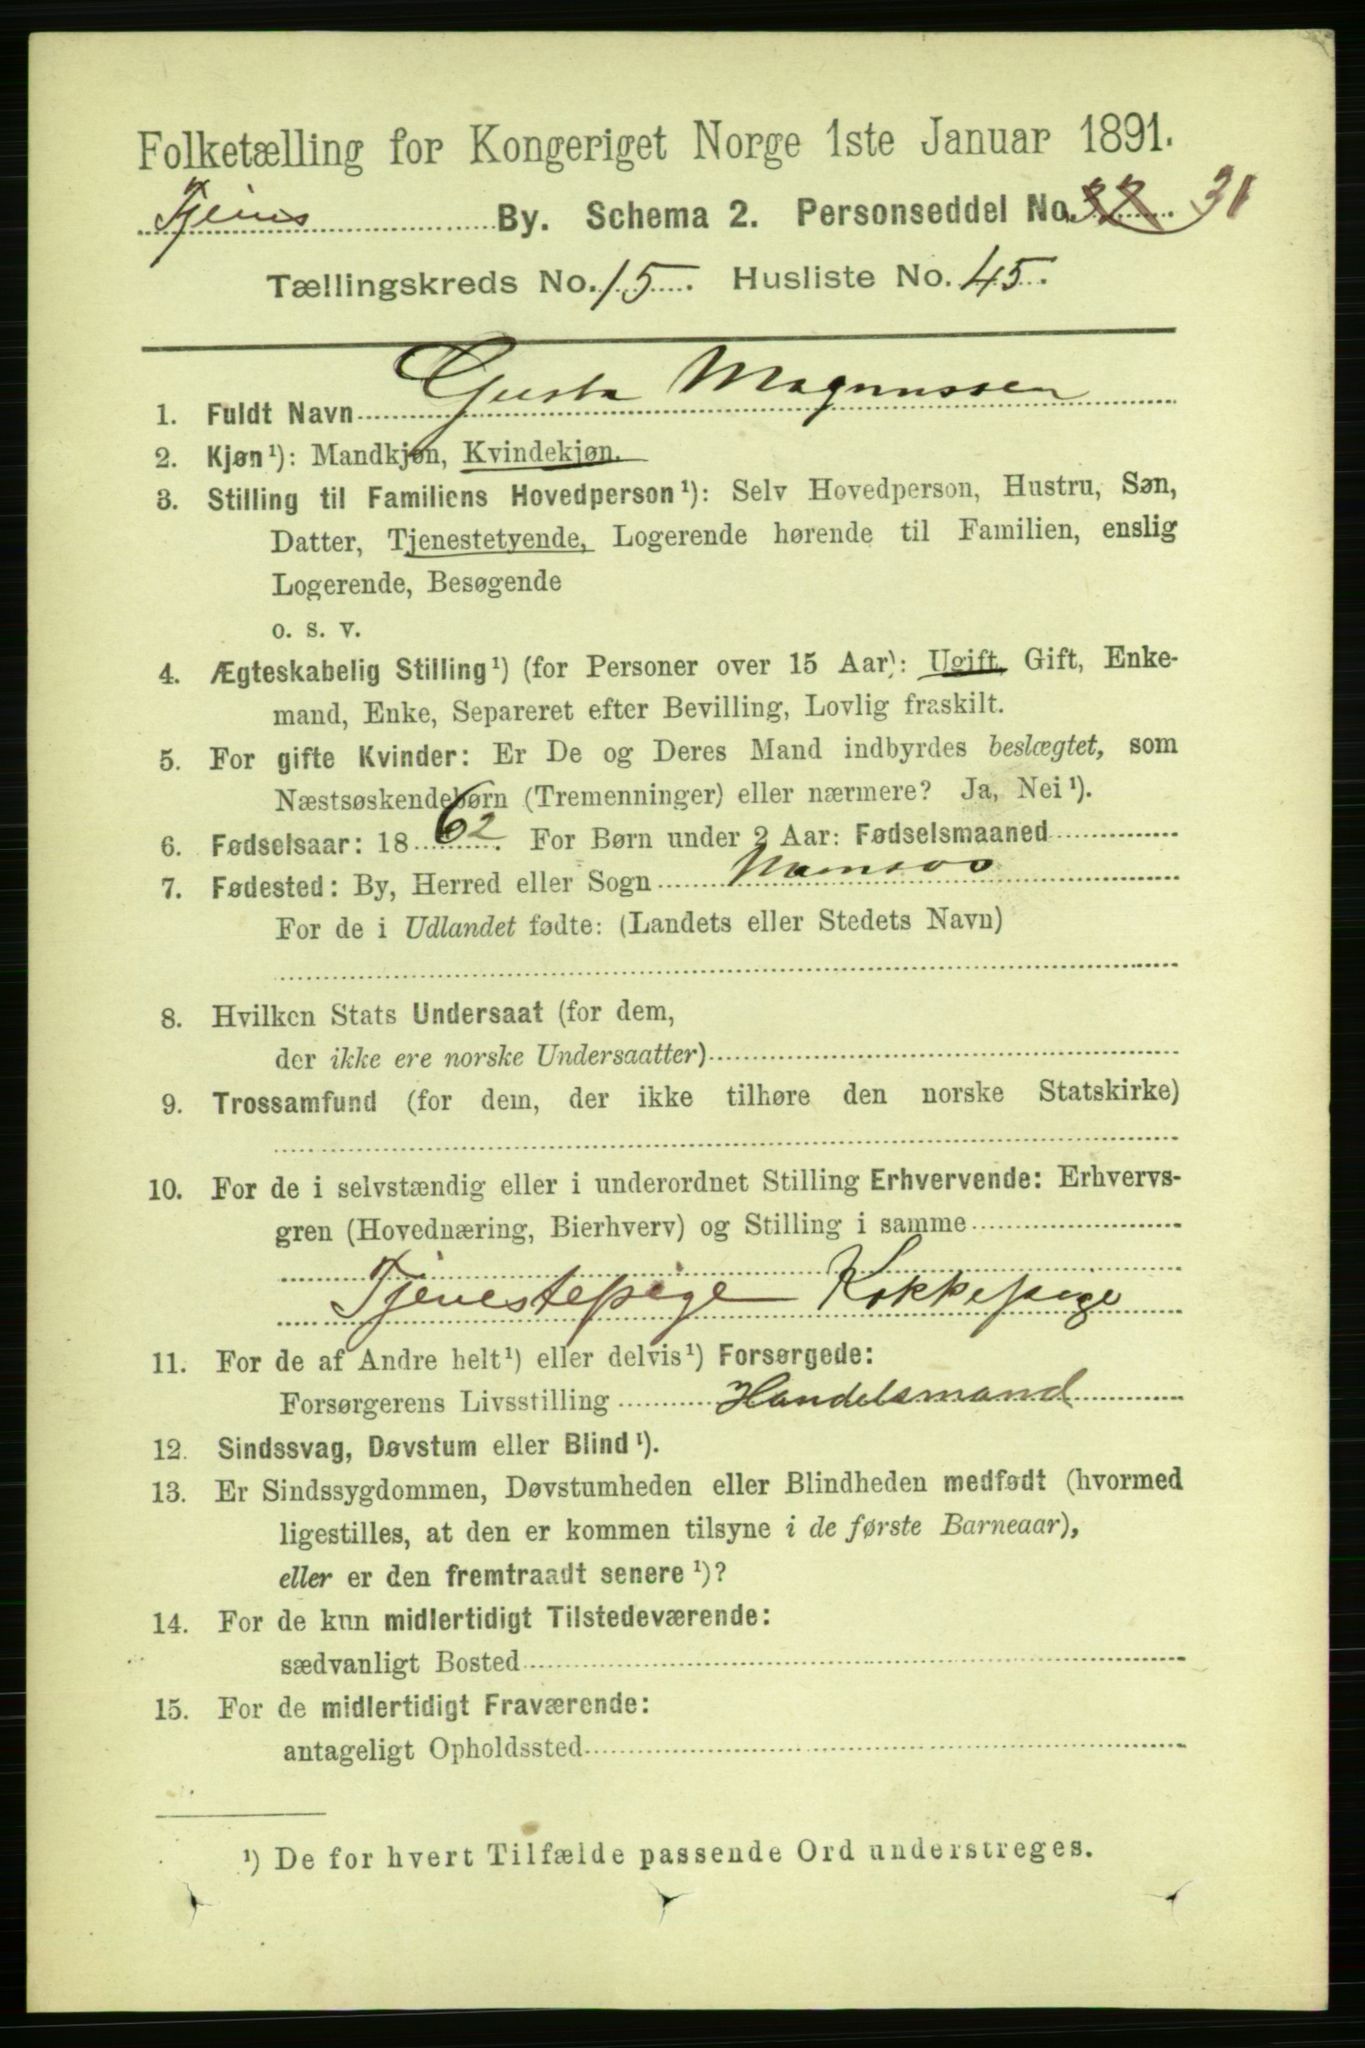 Folketælling for Kongeriget Norge 1ste Januar 1891.
By. Schema 2. Personseddel No. 32 31
Tællingskreds No. 15. Husliste No. 45.
1. Fuldt Navn Gusta Magnussen
2. Kjøn¹): Mandkjøn, Kvindekjøn.
3. Stilling til Familiens Hovedperson¹): Selv Hovedperson, Hustru, Søn,
Datter, Tjenestetyende, Logerende hørende til Familien, enslig
Logerende, Besøgende
o. s. v.
4. Ægteskabelig Stilling¹) (for Personer over 15 Aar): Ugift, Gift, Enke-
mand, Enke, Separeret efter Bevilling, Lovlig fraskilt.
5. For gifte Kvinder: Er De og Deres Mand indbyrdes beslægtet, som
Næstsøskendebørn (Tremenninger) eller nærmere? Ja, Nei¹).
6. Fødselsaar: 1862. For Børn under 2 Aar: Fødselsmaaned
7. Fødested: By, Herred eller Sogn Namsos
For de i Udlandet fødte: (Landets eller Stedets Navn)
8. Hvilken Stats Undersaat (for dem,
der ikke ere norske Undersaatter)
9. Trossamfund (for dem, der ikke tilhøre den norske Statskirke)
10. For de i selvstændig eller i underordnet Stilling Erhvervende: Erhvervs-
gren (Hovednæring, Bierhverv) og Stilling i samme
Tjenestepige Kokkepige
11. For de af Andre helt¹) eller delvis¹) Forsørgede:
Forsørgerens Livsstilling Handelsmand
12. Sindssvag, Døvstum eller Blind¹).
13. Er Sindssygdommen, Døvstumheden eller Blindheden medfødt (hvormed
ligestilles, at den er kommen tilsyne i de første Barneaar),
eller er den fremtraadt senere¹)?
14. For de kun midlertidigt Tilstedeværende:
sædvanligt Bosted
15. For de midlertidigt Fraværende:
antageligt Opholdssted
¹) De for hvert Tilfælde passende Ord understreges.